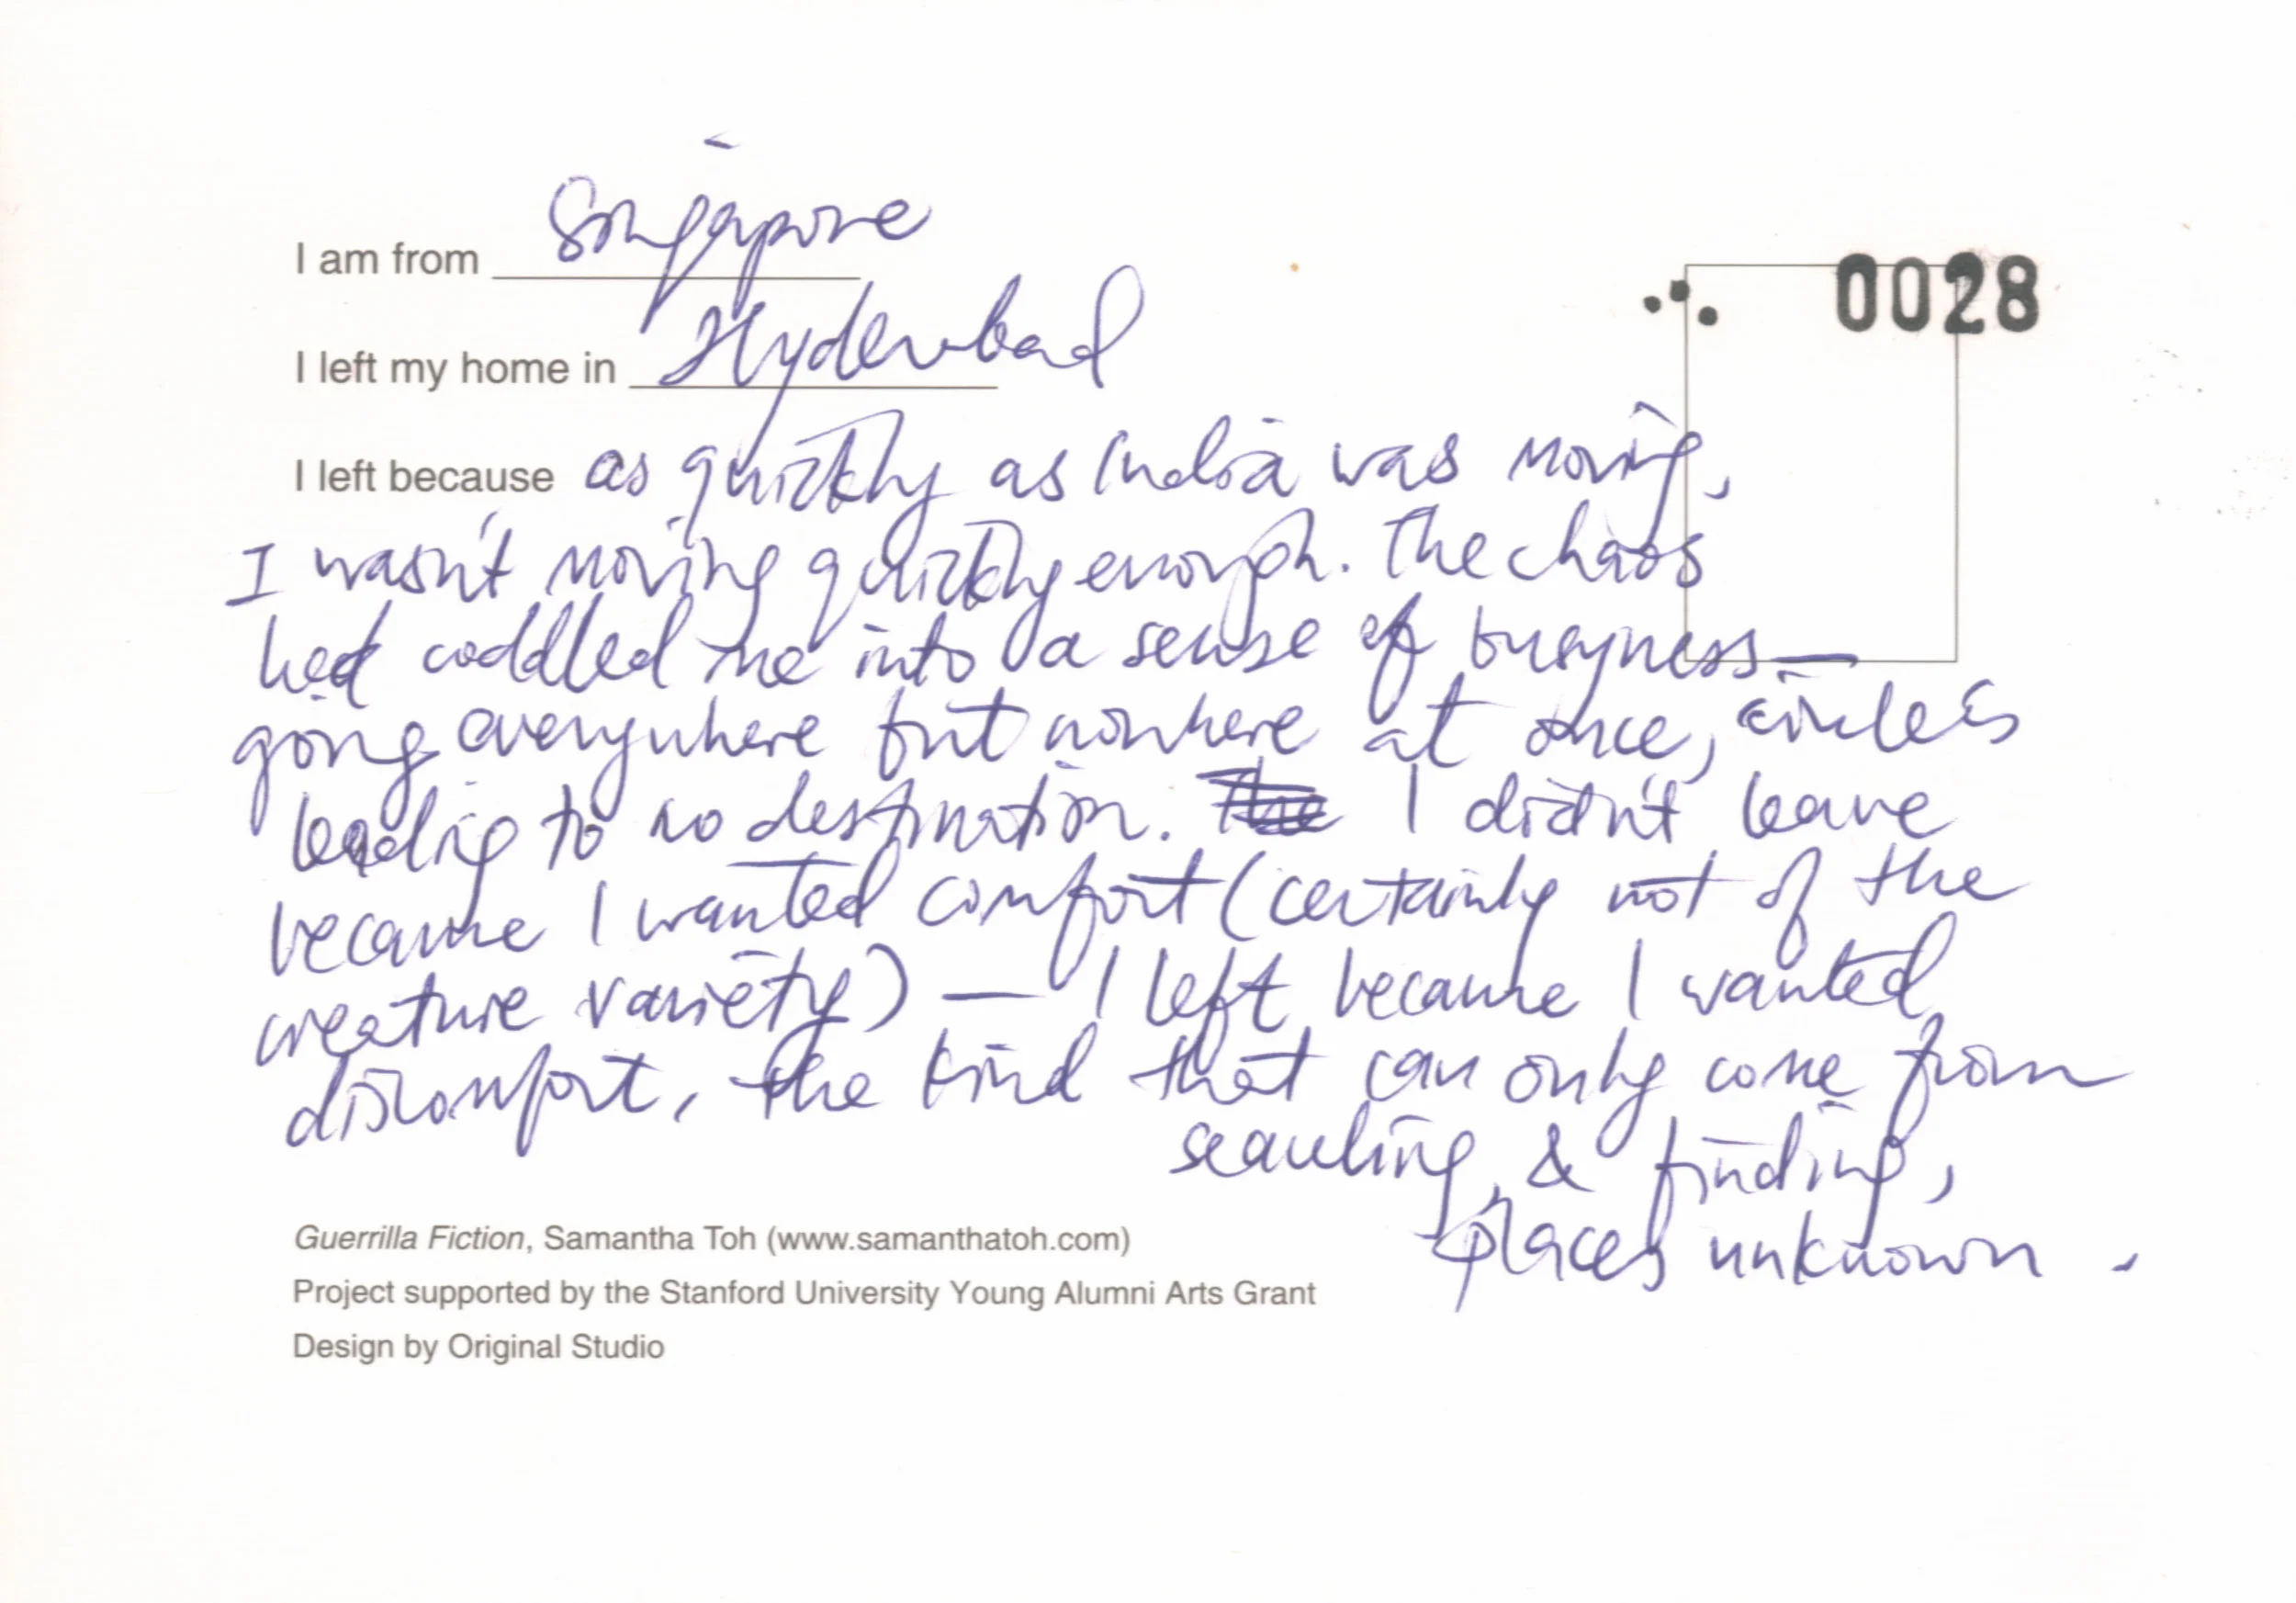 I am from Singapore
0028
I left my home in Hyderabad
I left because as quickly as India was moving,
I wasn't moving quickly enough. The chaos
had coddled me into a sense of busyness —
going everywhere but nowhere at once, circles
leading to no destination. I didn't leave
because I wanted comfort (certainly not of the
creature variety) — I left because I wanted
discomfort, the kind that can only come from
searching, & finding,
places unknown.
Guerrilla Fiction, Samantha Toh (www.samanthatoh.com)
Project supported by the Stanford University Young Alumni Arts Grant
Design by Original Studio